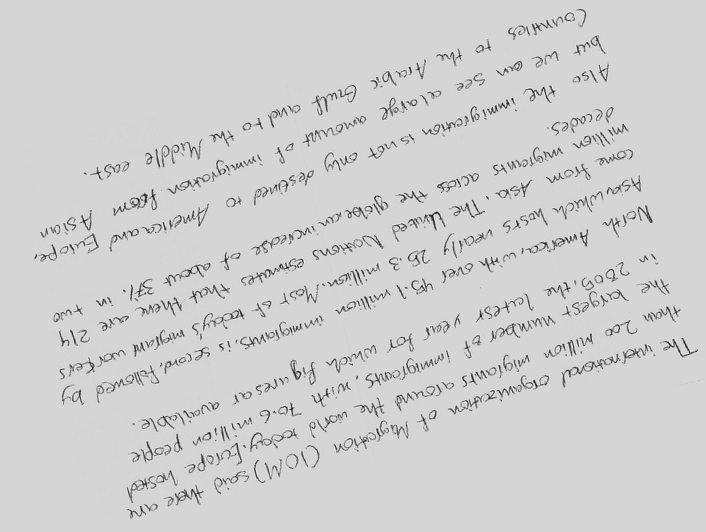 The international organization of Migration (IOM) said there are
than 200 million migrants around the world today. Europe hosted
the largest number of immigrants, with 70.6 million people
in 2005, the latest year for which figures ar available.
North America, with over 45.1 million immigrants, is second, followed by
Asia which hosts nearly 25.3 million. Most of today's migrant workers
come from Asia. The United Nations estimates that there are 214
million migrants across the globe an increase of about 37% in two
decades.
Also the immigration is not only destined to America and Europe,
but we can see a large amount of immigration from Asian
Countries to the Arabic Gulf and to the Middle east.